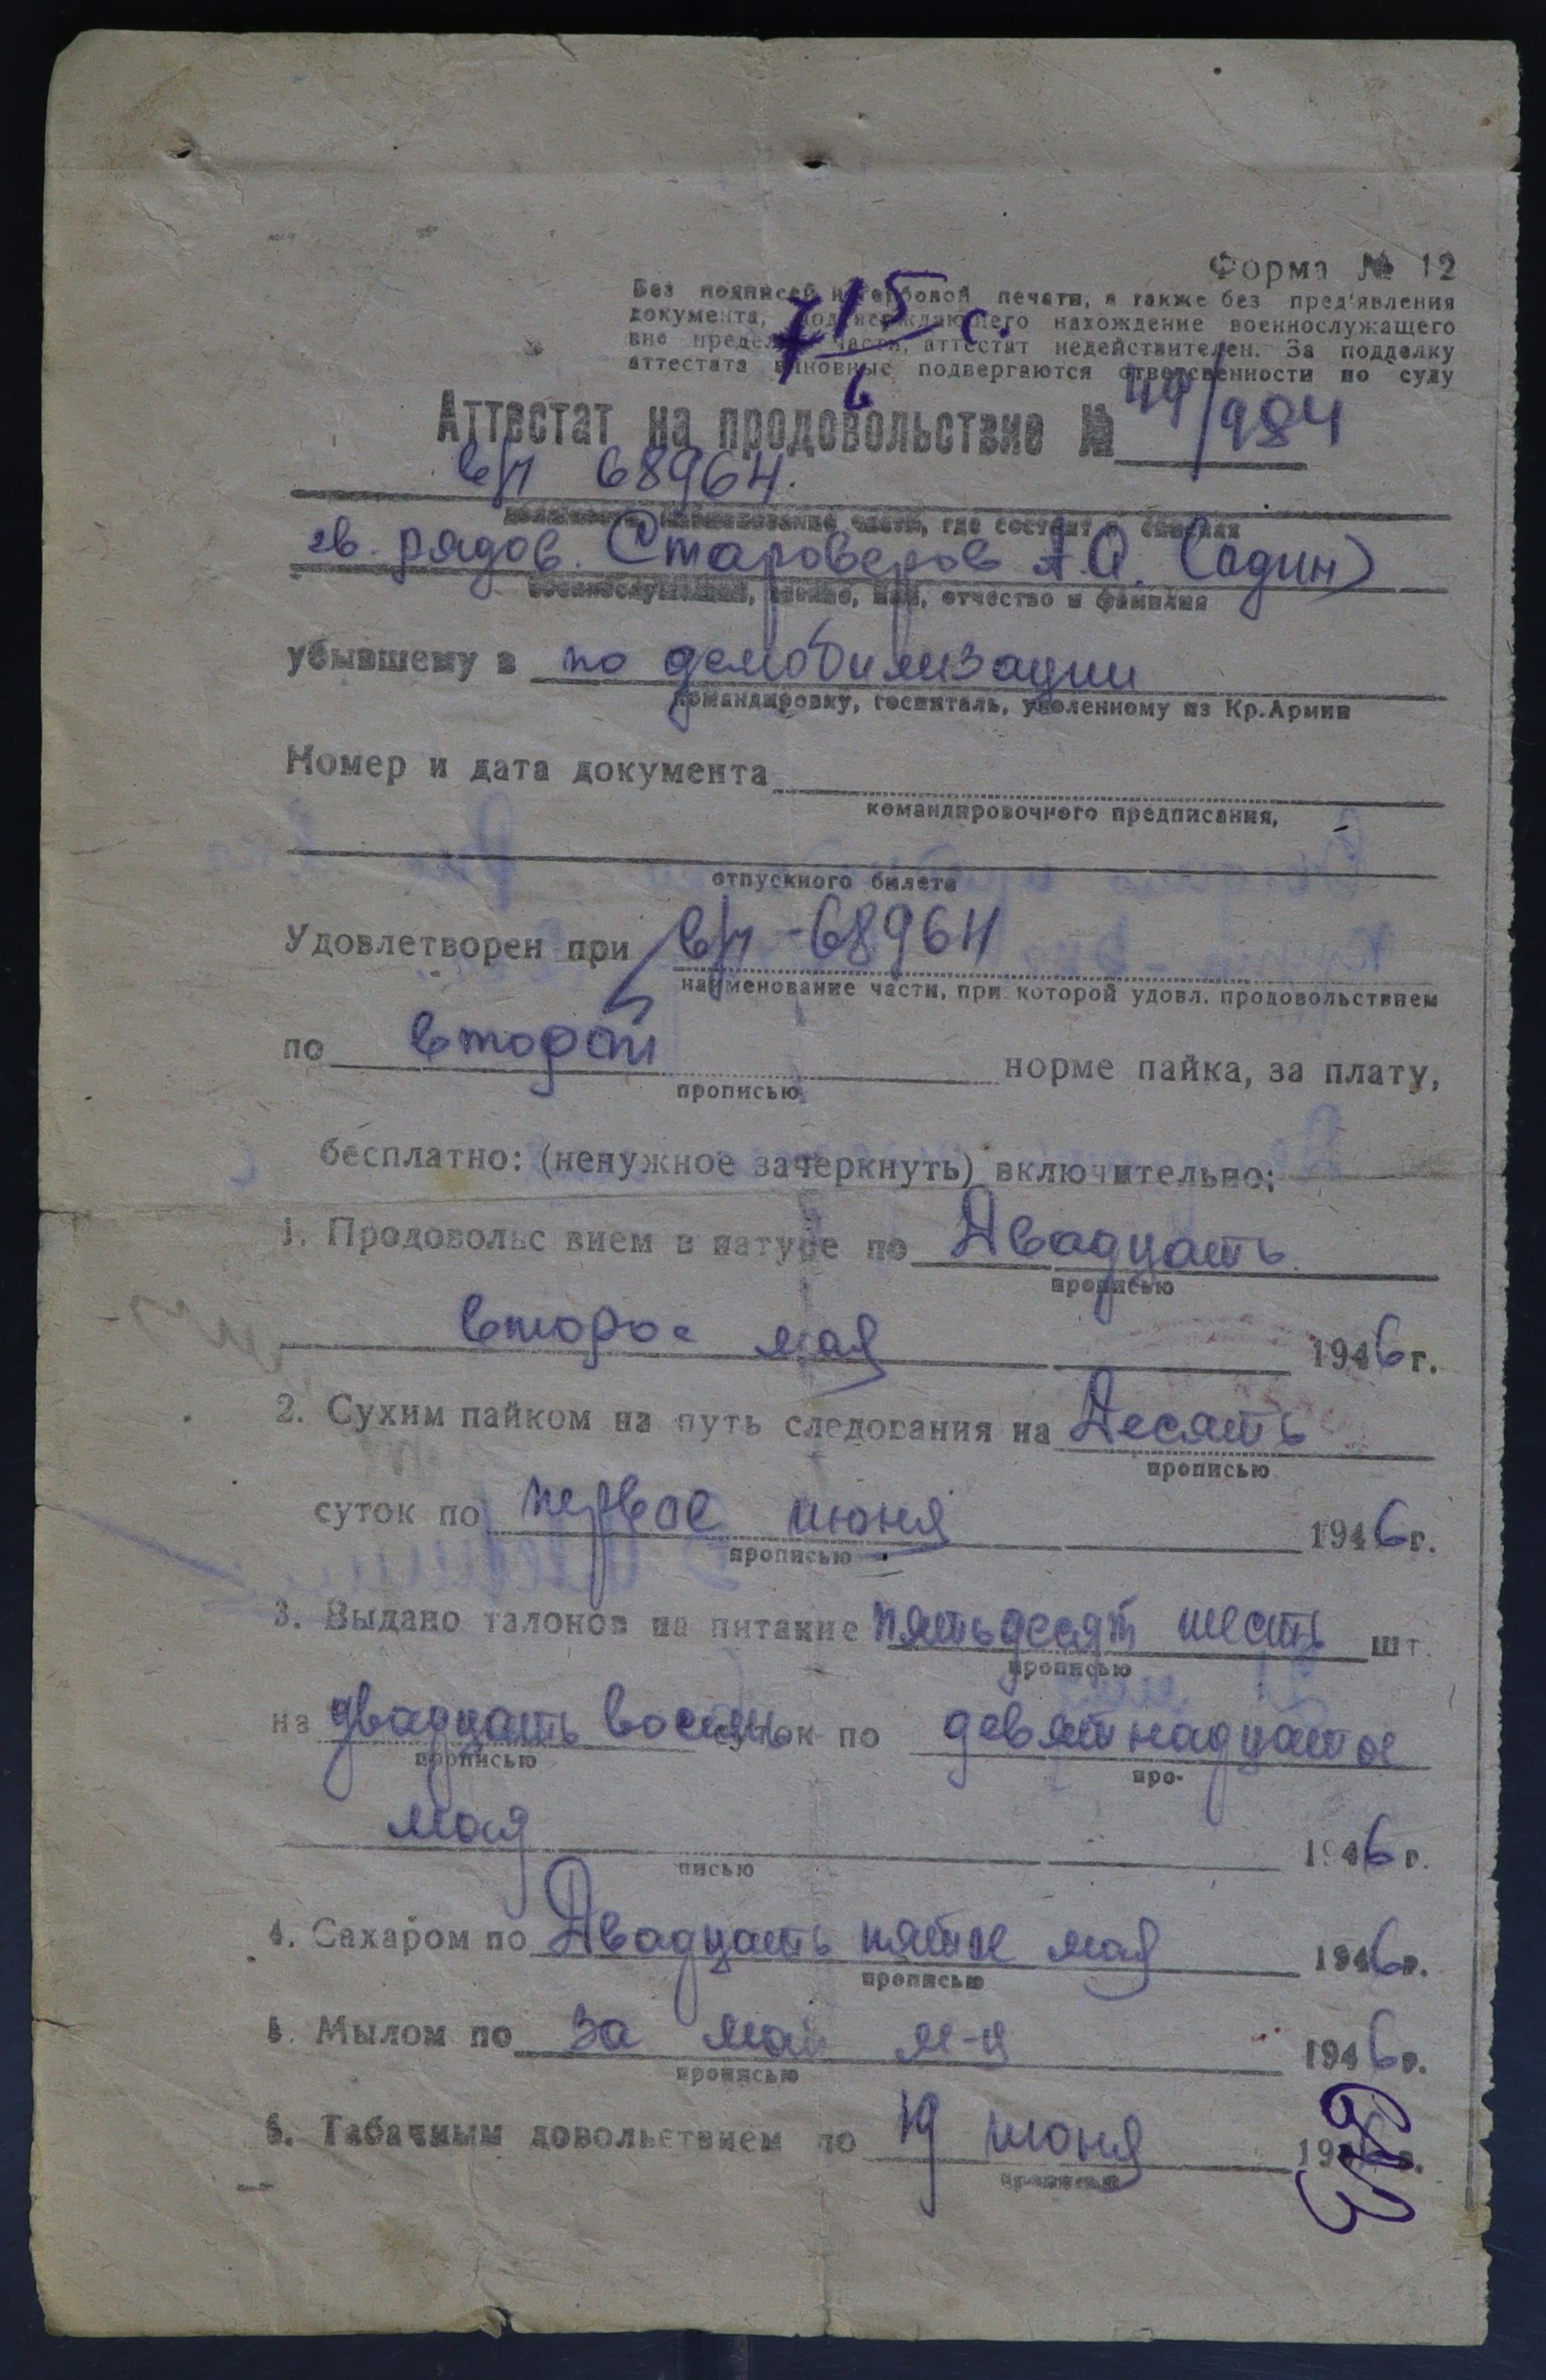 Форма № 12
Без подписей и гербовой печати, а также без пред'явления
документа, подтверждающего нахождение военнослужащего
вне пределов части, аттестат недействителен. За подделку
аттестата виновные подвергаются ответсвенности по суду
715 с.
6
Аттестат на продовольствие № 49/984
в/п 68964.
наименование части, где состоит
гв. рядов. Староверов А.А. (один)
военнослужащий, звание, имя, отчество и фамилия
убывшему в по демобилизации
командировку, госпиталь, уволенному из Кр.Армии
Номер и дата документа
командировочного предписания,
отпускного билета
Удовлетворен при в/п-68964
наименование части, при которой удовл. продовольствием
по второй норме пайка, за плату,
прописью
бесплатно: (ненужное зачеркнуть) включительно:
1. Продовольс вием в натуре по Двадцать
прописью
второе мая 1946г.
2. Сухим пайком на путь следования на Десять
прописью
суток по первое июня 1946г.
прописью
3. Выдано талонов на питание пятьдесят шесть шт.
прописью
на двадцать восемь суток по девятнадцатое
прописью про-
мая 1946г.
писью
4. Сахаром по Двадцать пятое мая 1946г.
прописью
5. Мылом по за май м-ц 1946г.
прописью
6. Табачным довольствием по 19 июня 1946г.
прописью